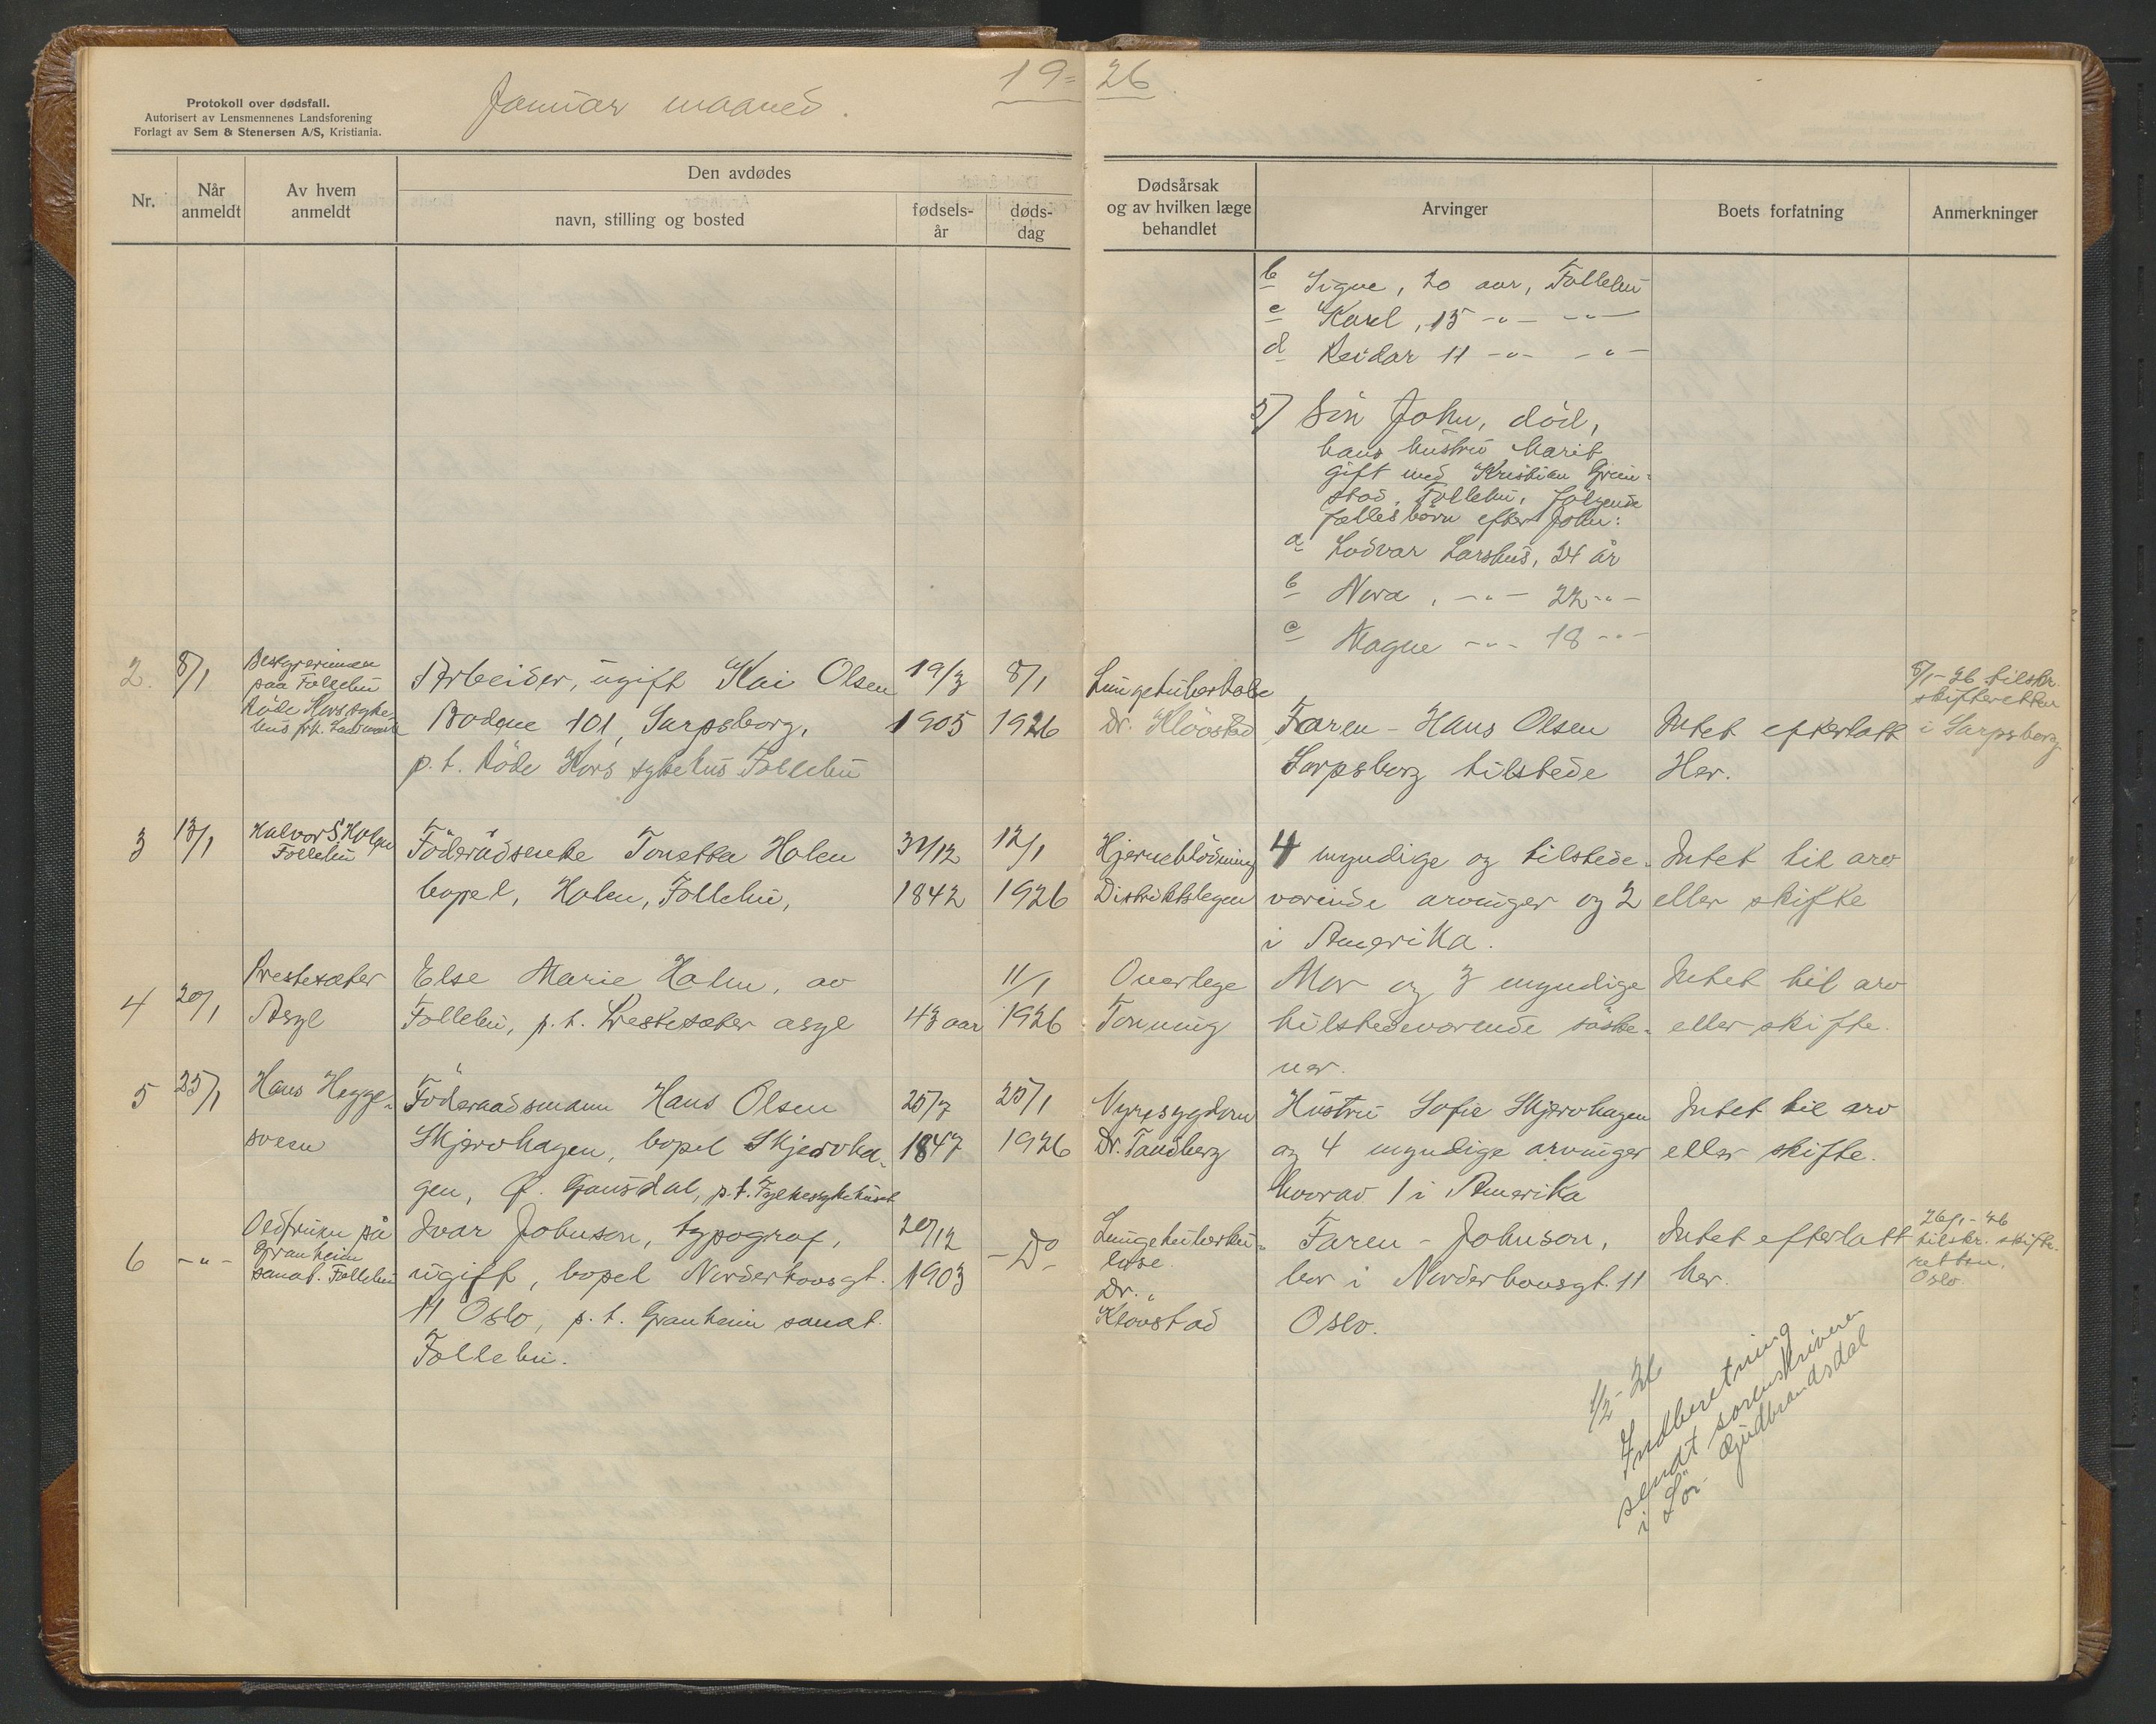 19 = 26
Protokoll over dødsfall.
Autorisert av Lensmennenes Landsforening
Forlagt av Sem & Stenersen A/S, Kristiania.
Januar maaned.
Nr.
Når anmeldt
Av hvem anmeldt
Den avdødes
navn, stilling og bosted
fødsels-
år
døds-
dag
Dødsårsak
og av hvilken læge
behandlet
Arvinger
Boets forfatning
Anmerkninger
b Signe, 20 aar, Follebu
c Karl, 15 -"- -"-
d Reidar 11 -"- -"-
5) Sön John, död,
hans hustru Marit
gift med Kristian Grim-
stad, Follebu. Følgende
fællesbörn efter John:
a Lodvar Larshus, 24 år
b Nora, -"- 22 -"-
c Magne -"- 18 -"-
2. 8/1
Bestyrerinnen
paa Follebu
Röde Kors syke-
hus frk.
Arbeider, ugift Kai Olsen
Bodgue 101, Sarpsborg,
p.t. Röde Kors sykehus Follebu
19/3
1905
8/1
1926
Lungetuberkulose
Dr. Klövstad
Faren - Hans Olsen
Sarpsborg tilstede
Intet efterlatt
Her.
8/1-26 tilskr.
skifteretten
i Sarpsborg
3 13/1
Halvor S. Holen
Follebu
Föderådsenke Tonetta Holen
bopel, Holen, Follebu,
31/12
1842
12/1
1926
Hjerneblödning
Distriktslegen
4 myndige og tilstede-
værende arvinger og 2
i Amerika.
Intet til arv
eller skifte
4 20/1
Prestesæter
Asyl
Else Marie Holm, av
Follebu, p.t. Prestesæter asyl
43 aar
11/1
1926
Overlege
Tonning
Mor og 3 myndige
tilstedeværende söske-
ner.
Intet til arv
eller skifte.
5 25/1
Hans Hegge-
sveen
Föderaadsmann Hans Olsen
Skjervhagen, bopel Skjervha-
gen, Ø. Gausdal, p.t. Fylkessykehuset
25/7
1847
25/1
1926
Nyresygdom
Dr. Tandberg
Hustru Sofie Skjervhagen
og 4 myndige arvinger
hvorav 1 i Amerika
Intet til arv
eller skifte.
6 -"-
Oldfruen på
Granheim
sanat. Follebu
Ivar Johnson, typograf,
ugift, bopel Norderhovsgt.
11 Oslo, p.t. Granheim sanat.
Follebu.
20/12
1903
- Do -
Lungetuberku-
lose.
Dr.
Klovstad
Faren - Johnson,
bor i Norderhovsgt. 11
Oslo.
Intet efterlatt
her.
26/1-26
tilskr. skifte-
retten.
Oslo
1/2-26
Indberetning
sendt sorenskriveren
i Sör-Gudbrandsdal